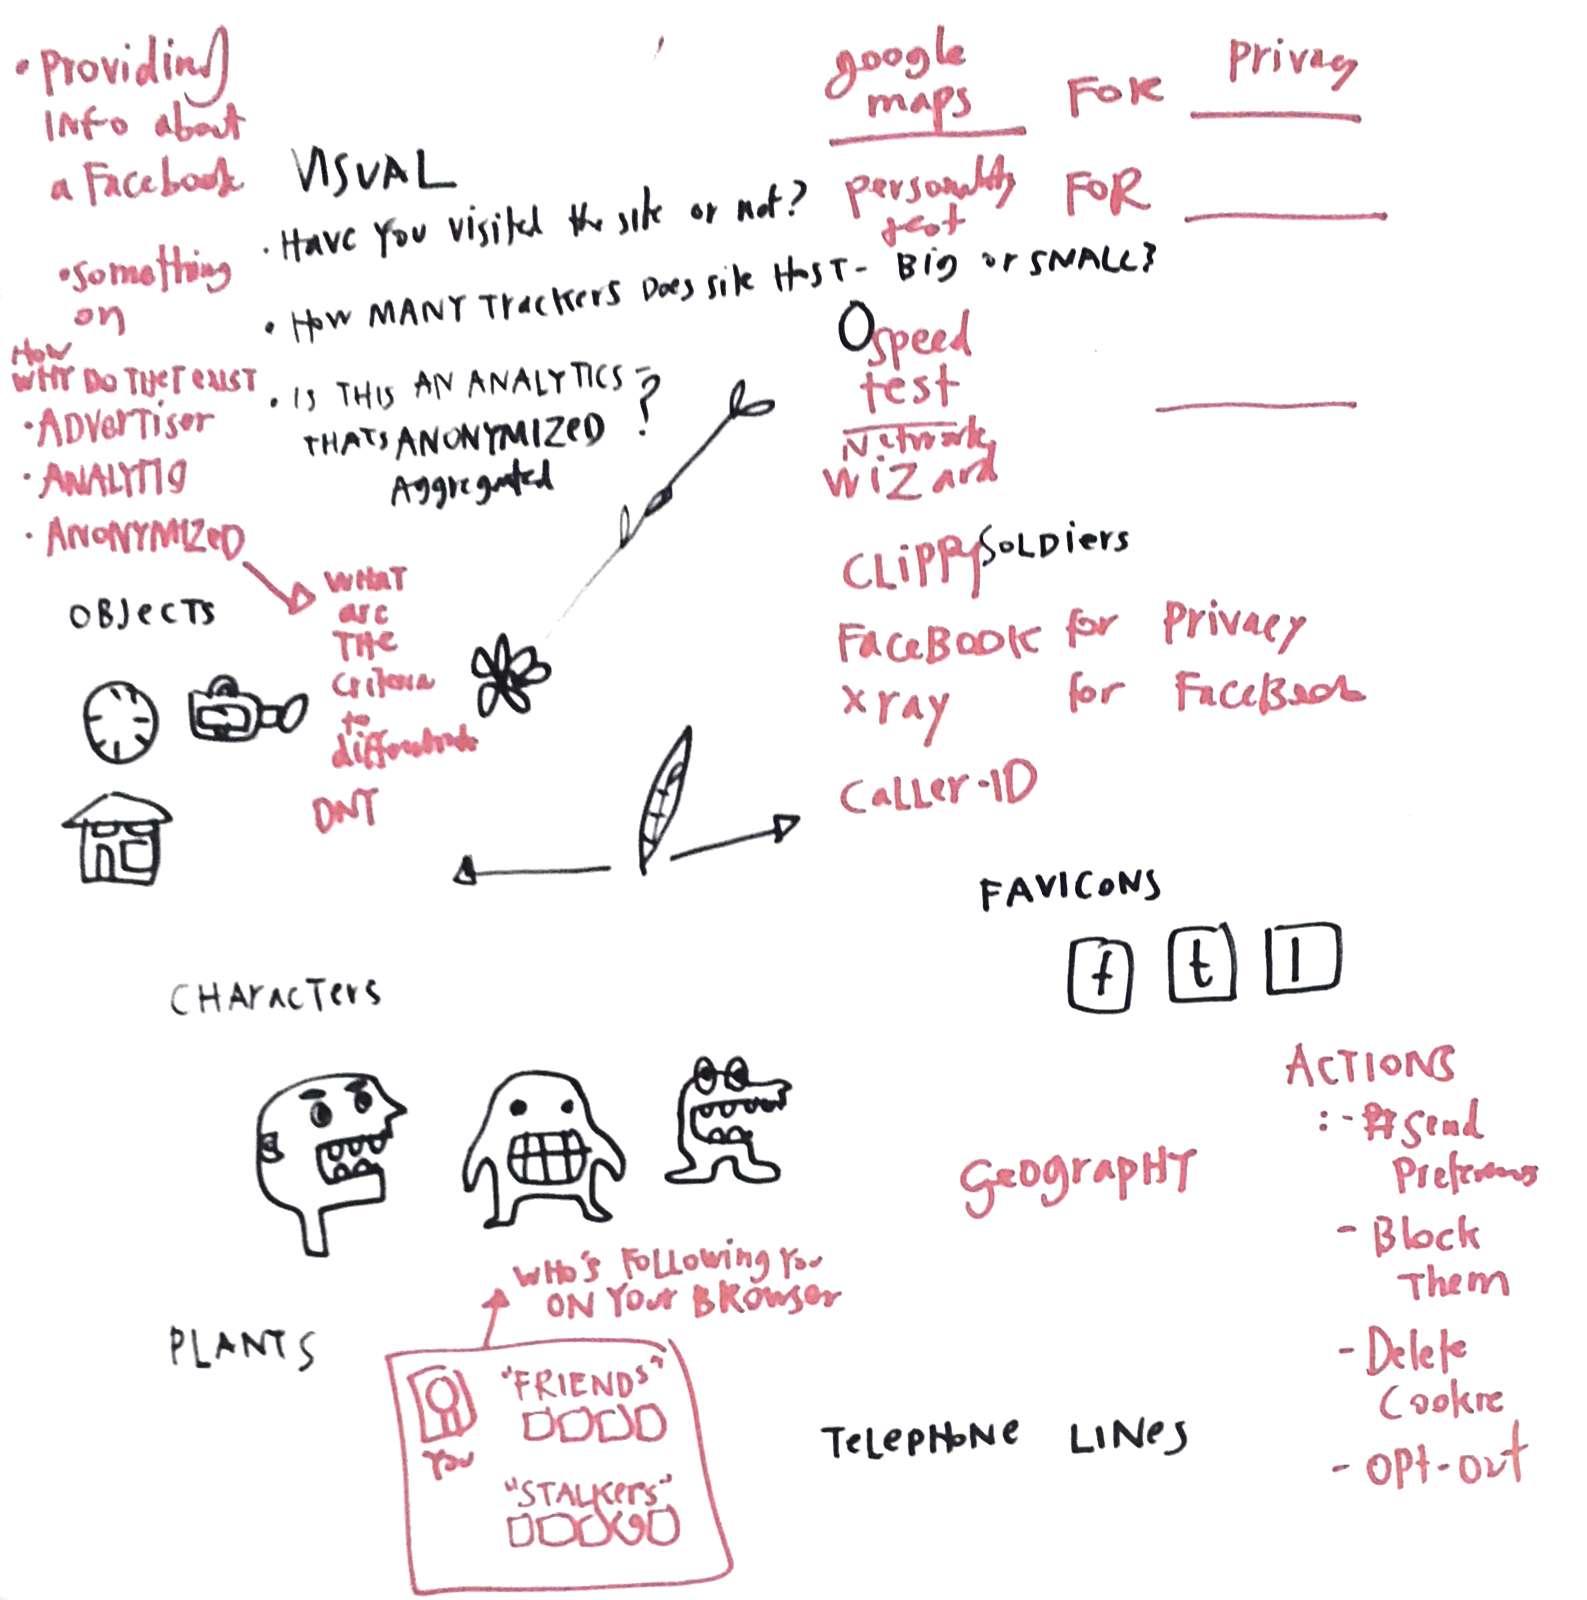 • Providing
info about
a Facebook
• something
on
How
WHY DO THEY EXIST
• ADVERTISER
• ANALYTIG
• ANONYMIZED
WHAT
are
THE
criteria
to
DNT
VISUAL
• Have you visited the site or not?
• How MANY Trackers Does site HosT - Big or SMALL?
• IS THIS AN ANALYTICS -
THATS ANONYMIZED ?
Aggregated
google
maps FOR Privacy
personality
test FOR
speed
test
Network
Wizard
CLIPPY SOLDIERS
FACEBOOK for Privacy
X ray for FACEBOOK
CALLER-ID
OBJECTS
FAVICONS
f t l
CHARACTERS
ACTIONS
: - send
Preferences
- Block
Them
- Delete
Cookie
- OPT-OUT
GEOGRAPHY
WHO'S FOLLOWING YOU
ON YOUR BROWSER
PLANTS
"FRIENDS"
You
"STALKERS"
TELEPHONE LINES